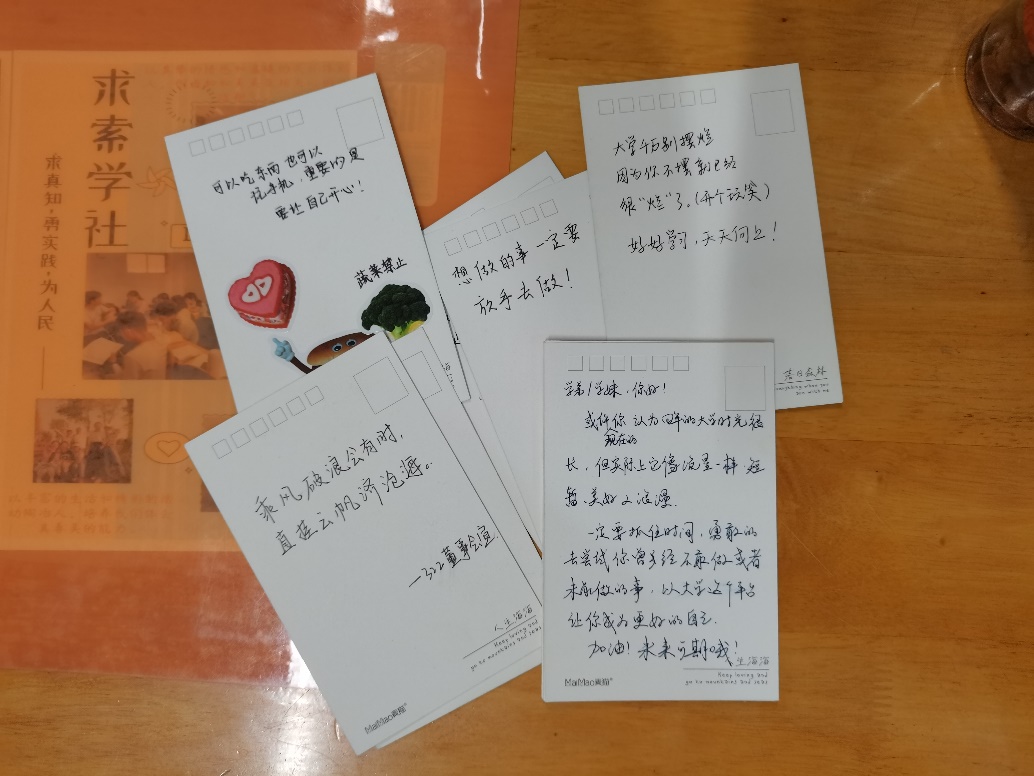 求索学社
求真知,善实践,为人民
可以吃东西 也可以
玩手机,重要的是
要让自己开心!
蔬菜禁止
想做的事一定要
放手去做!
大学千万别摆烂
因为你不摆就已经
很“烂”了。(开个玩笑)
好好学习,天天向上!
落日森林
everything when you
are with me
乘风破浪会有时,
直挂云帆济沧海。
—322董事会宣
人生海海
Keep loving and
go to mountains and seas
MaiMao麦猫
学弟/学妹,你好!
或许你 认为四年的大学时光很
现在的
长,但实际上它像流星一样 短
暂、美好又浪漫.
一定要抓住时间,勇敢的
去尝试你曾经不敢做或者
未能做的事,以大学这个平台
让你成为更好的自己.
加油!未来可期哦!
生海海
Keep loving and
go to mountains and seas
MaiMao麦猫